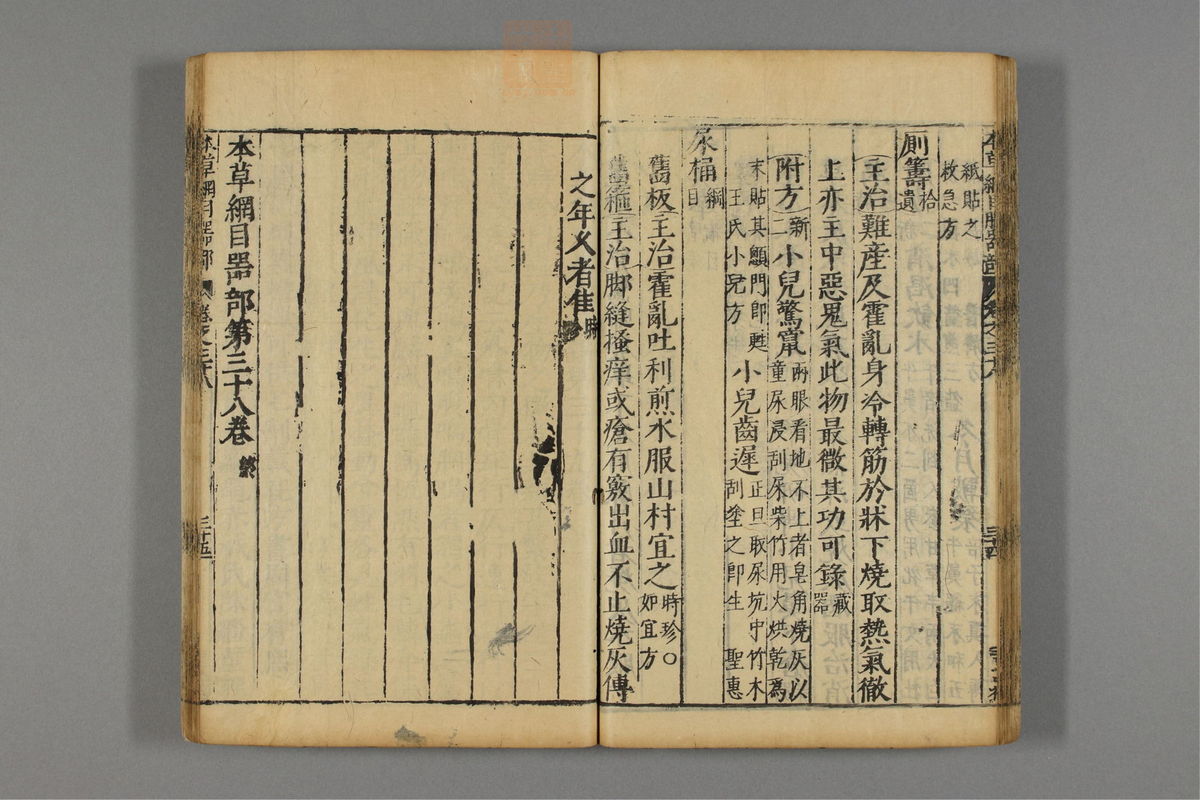 紙貼之
救急方
廁籌拾遺
主治難產及霍亂身冷轉筋於牀下燒取熱氣徹
上亦主中惡鬼氣此物最微其功可錄藏器
附方新二小兒驚竄兩眼看地不上者皂角燒灰以
童尿浸刮屎柴竹用火烘乾爲
末貼其顖門即甦
王氏小兒方
小兒齒遲正旦取尿坑中竹木
刮塗之即生
聖惠
尿桶綱目
舊板主治霍亂吐利煎水服山村宜之時珍○
如宜方
舊箍主治脚縫搔痒或瘡有竅出血不止燒灰傅
之年乂者隹時珍
本草綱目器部第三十八卷終
本草綱目器部
卷之三十八
三十五